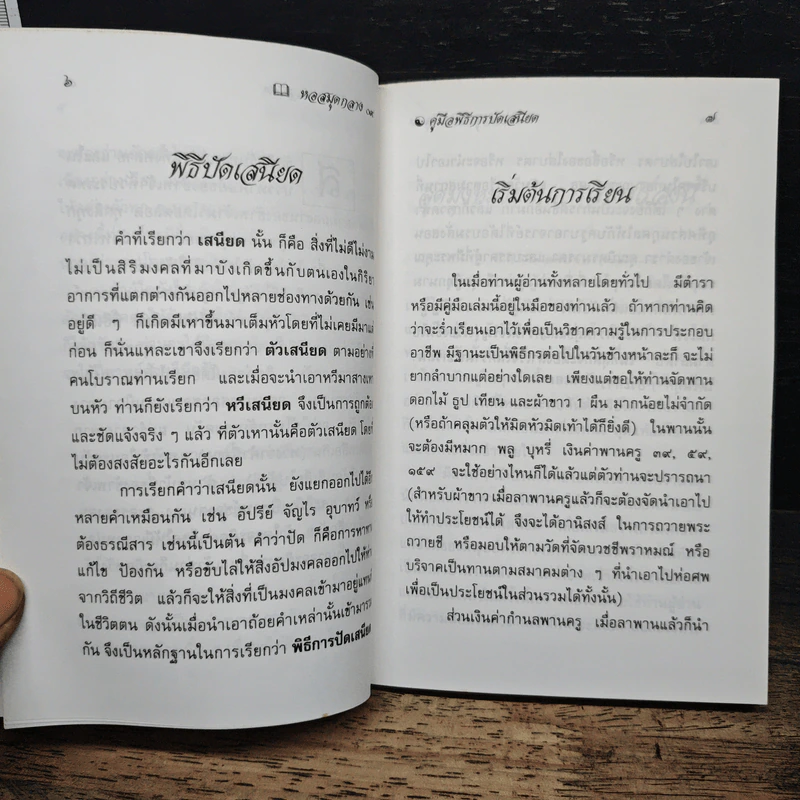 ๖
หอสมุดกลาง ๐๙
พิธีปัดเสนียด
คำที่เรียกว่า เสนียด นั้น ก็คือ สิ่งที่ไม่ดีไม่งาม
ไม่เป็นสิริมงคลที่มาบังเกิดขึ้นกับตนเองในกิริยา
อาการที่แตกต่างกันออกไปหลายช่องทางด้วยกัน เช่น
อยู่ดี ๆ ก็เกิดมีเหาขึ้นมาเต็มหัวโดยที่ไม่เคยมีมาแต่
ก่อน ก็นั่นแหละเขาจึงเรียกว่า ตัวเสนียด ตามอย่างที่
คนโบราณท่านเรียก และเมื่อจะนำเอาหวีมาสางเหา
บนหัว ท่านก็ยังเรียกว่า หวีเสนียด จึงเป็นการถูกต้อง
และชัดแจ้งจริง ๆ แล้ว ที่ตัวเหานั้นคือตัวเสนียด โดยที่
ไม่ต้องสงสัยอะไรกันอีกเลย
การเรียกคำว่าเสนียดนั้น ยังแยกออกไปได้อีก
หลายคำเหมือนกัน เช่น อัปรีย์ จัญไร อุบาทว์ หรือ
ต้องธรณีสาร เช่นนี้เป็นต้น คำว่าปัด ก็คือการหาทาง
แก้ไข ป้องกัน หรือขับไล่ให้สิ่งอัปมงคลออกไปให้พ้น
จากวิถีชีวิต แล้วก็จะให้สิ่งที่เป็นมงคลเข้ามาอยู่แทนที่
ในชีวิตตน ดังนั้นเมื่อนำเอาถ้อยคำเหล่านั้นเข้ามารวม
กัน จึงเป็นหลักฐานในการเรียกว่า พิธีการปัดเสนียด
คู่มือพิธีการปัดเสนียด
๗
เริ่มต้นการเรียน
ในเมื่อท่านผู้อ่านทั้งหลายโดยทั่วไป มีตำรา
หรือมีคู่มือเล่มนี้อยู่ในมือของท่านแล้ว ถ้าหากท่านคิด
ว่าจะร่ำเรียนเอาไว้เพื่อเป็นวิชาความรู้ในการประกอบ
อาชีพ มีฐานะเป็นพิธีกรต่อไปในวันข้างหน้าละก็ จะไม่
ยากลำบากแต่อย่างใดเลย เพียงแต่ขอให้ท่านจัดพาน
ดอกไม้ ธูป เทียน และผ้าขาว 1 ผืน มากน้อยไม่จำกัด
(หรือถ้าคลุมตัวให้มิดหัวมิดเท้าได้ก็ยิ่งดี) ในพานนั้น
จะต้องมีหมาก พลู บุหรี่ เงินค่าพานครู ๓๙, ๕๙,
๑๕๙ จะใช้อย่างไหนก็ได้แล้วแต่ตัวท่านจะปรารถนา
(สำหรับผ้าขาว เมื่อลาพานครูแล้วก็จะต้องจัดนำเอาไป
ให้ทำประโยชน์ได้ จึงจะได้อานิสงส์ ในการถวายพระ
ถวายชี หรือมอบให้ตามวัดที่จัดบวชชีพราหมณ์ หรือ
บริจาคเป็นทานตามสมาคมต่าง ๆ ที่นำเอาไปห่อศพ
เพื่อเป็นประโยชน์ในส่วนรวมได้ทั้งนั้น)
ส่วนเงินค่ากำนลพานครู เมื่อลาพานแล้วก็นำ